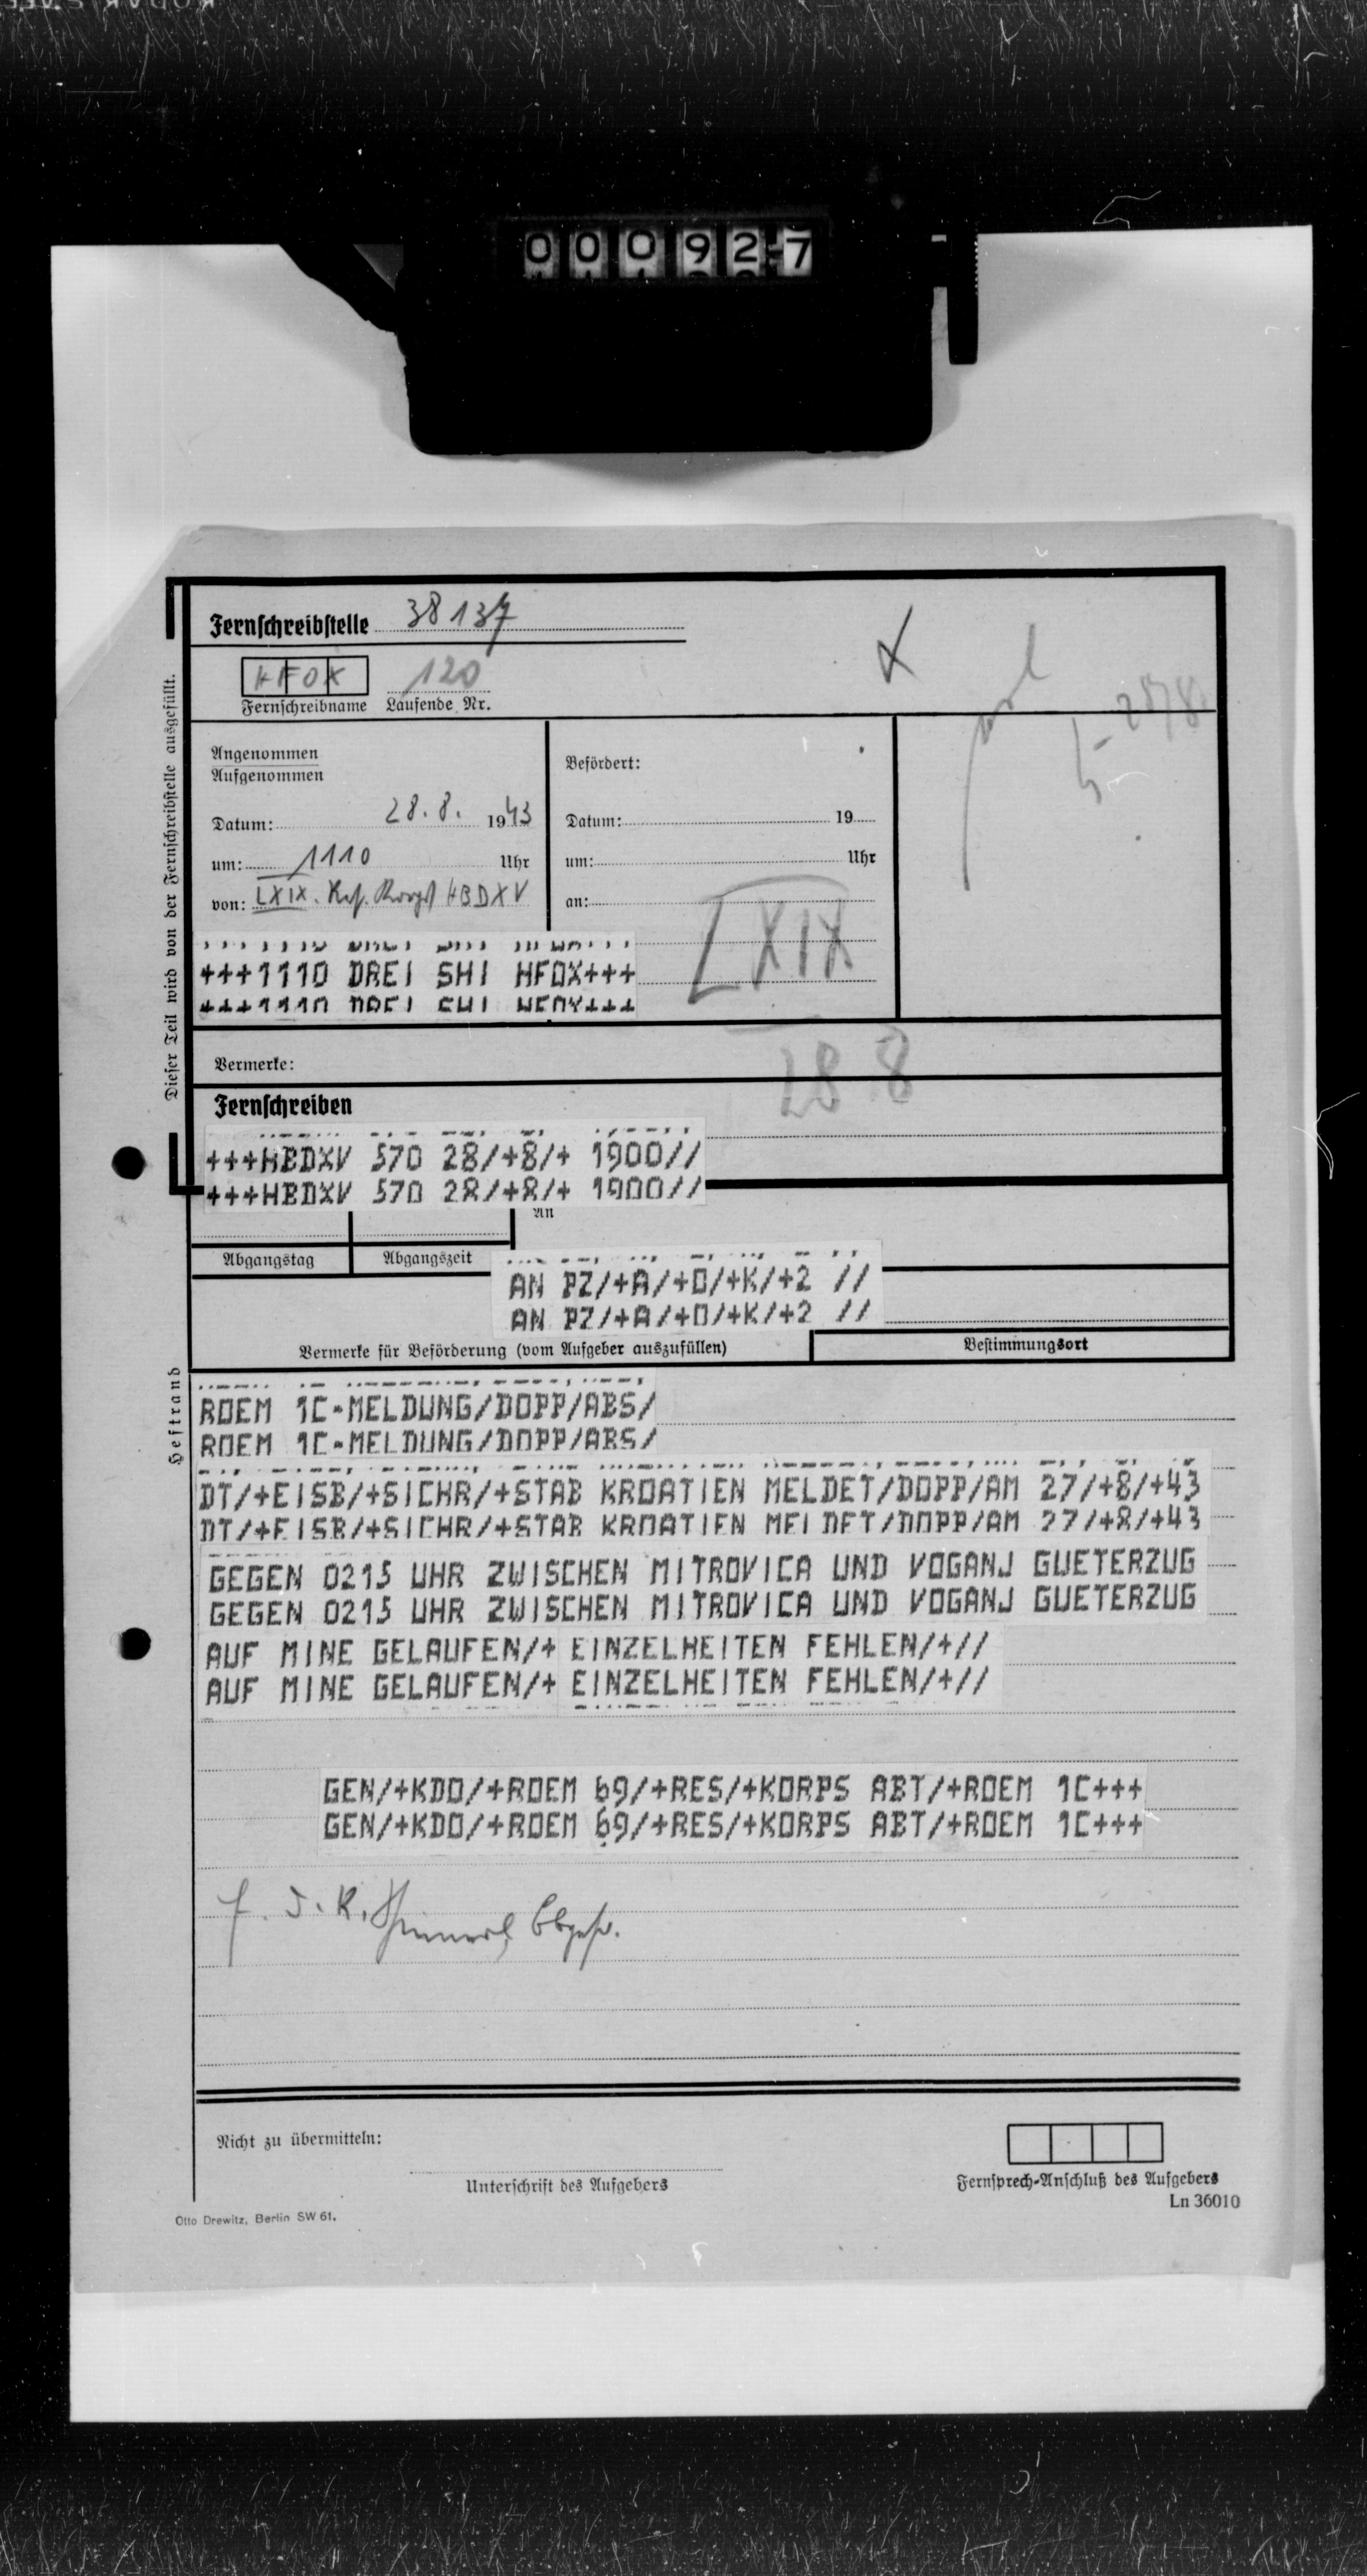 000927
Fernschreibstelle 38137
HFOX 120
Fernschreibname Laufende Nr.
Angenommen
Aufgenommen
Datum: 28. 8. 1943
um: 1110 Uhr
von: LXIX. Res. Korps HBDXV
Befördert:
Datum: 19
um: Uhr
an:
LXIX
+++1110 DREI SHI HFOX+++
+++1110 DREI SHI HFOX+++
Dieser Teil wird von der Fernschreibstelle ausgefüllt.
Vermerke:
28 8
Fernschreiben
+++HBDXV 570 28/+8/+ 1900//
+++HBDXV 570 28/+8/+ 1900//
An
Abgangstag Abgangszeit
AN PZ/+A/+O/+K/+2 //
AN PZ/+A/+O/+K/+2 //
Vermerke für Beförderung (vom Aufgeber auszufüllen) Bestimmungsort
Heftrand
ROEM 1C-MELDUNG/DOPP/ABS/
ROEM 1C-MELDUNG/DOPP/ABS/
DT/+EISB/+SICHR/+STAB KROATIEN MELDET/DOPP/AM 27/+8/+43
DT/+EISB/+SICHR/+STAB KROATIEN MELDET/DOPP/AM 27/+8/+43
GEGEN 0215 UHR ZWISCHEN MITROVICA UND VOGANJ GUETERZUG
GEGEN 0215 UHR ZWISCHEN MITROVICA UND VOGANJ GUETERZUG
AUF MINE GELAUFEN/+ EINZELHEITEN FEHLEN/+//
AUF MINE GELAUFEN/+ EINZELHEITEN FEHLEN/+//
GEN/+KDO/+ROEM 69/+RES/+KORPS ABT/+ROEM 1C+++
GEN/+KDO/+ROEM 69/+RES/+KORPS ABT/+ROEM 1C+++
Nicht zu übermitteln:
Unterschrift des Aufgebers
Fernsprech-Anschluß des Aufgebers
Ln 36010
Otto Drewitz, Berlin SW 61.